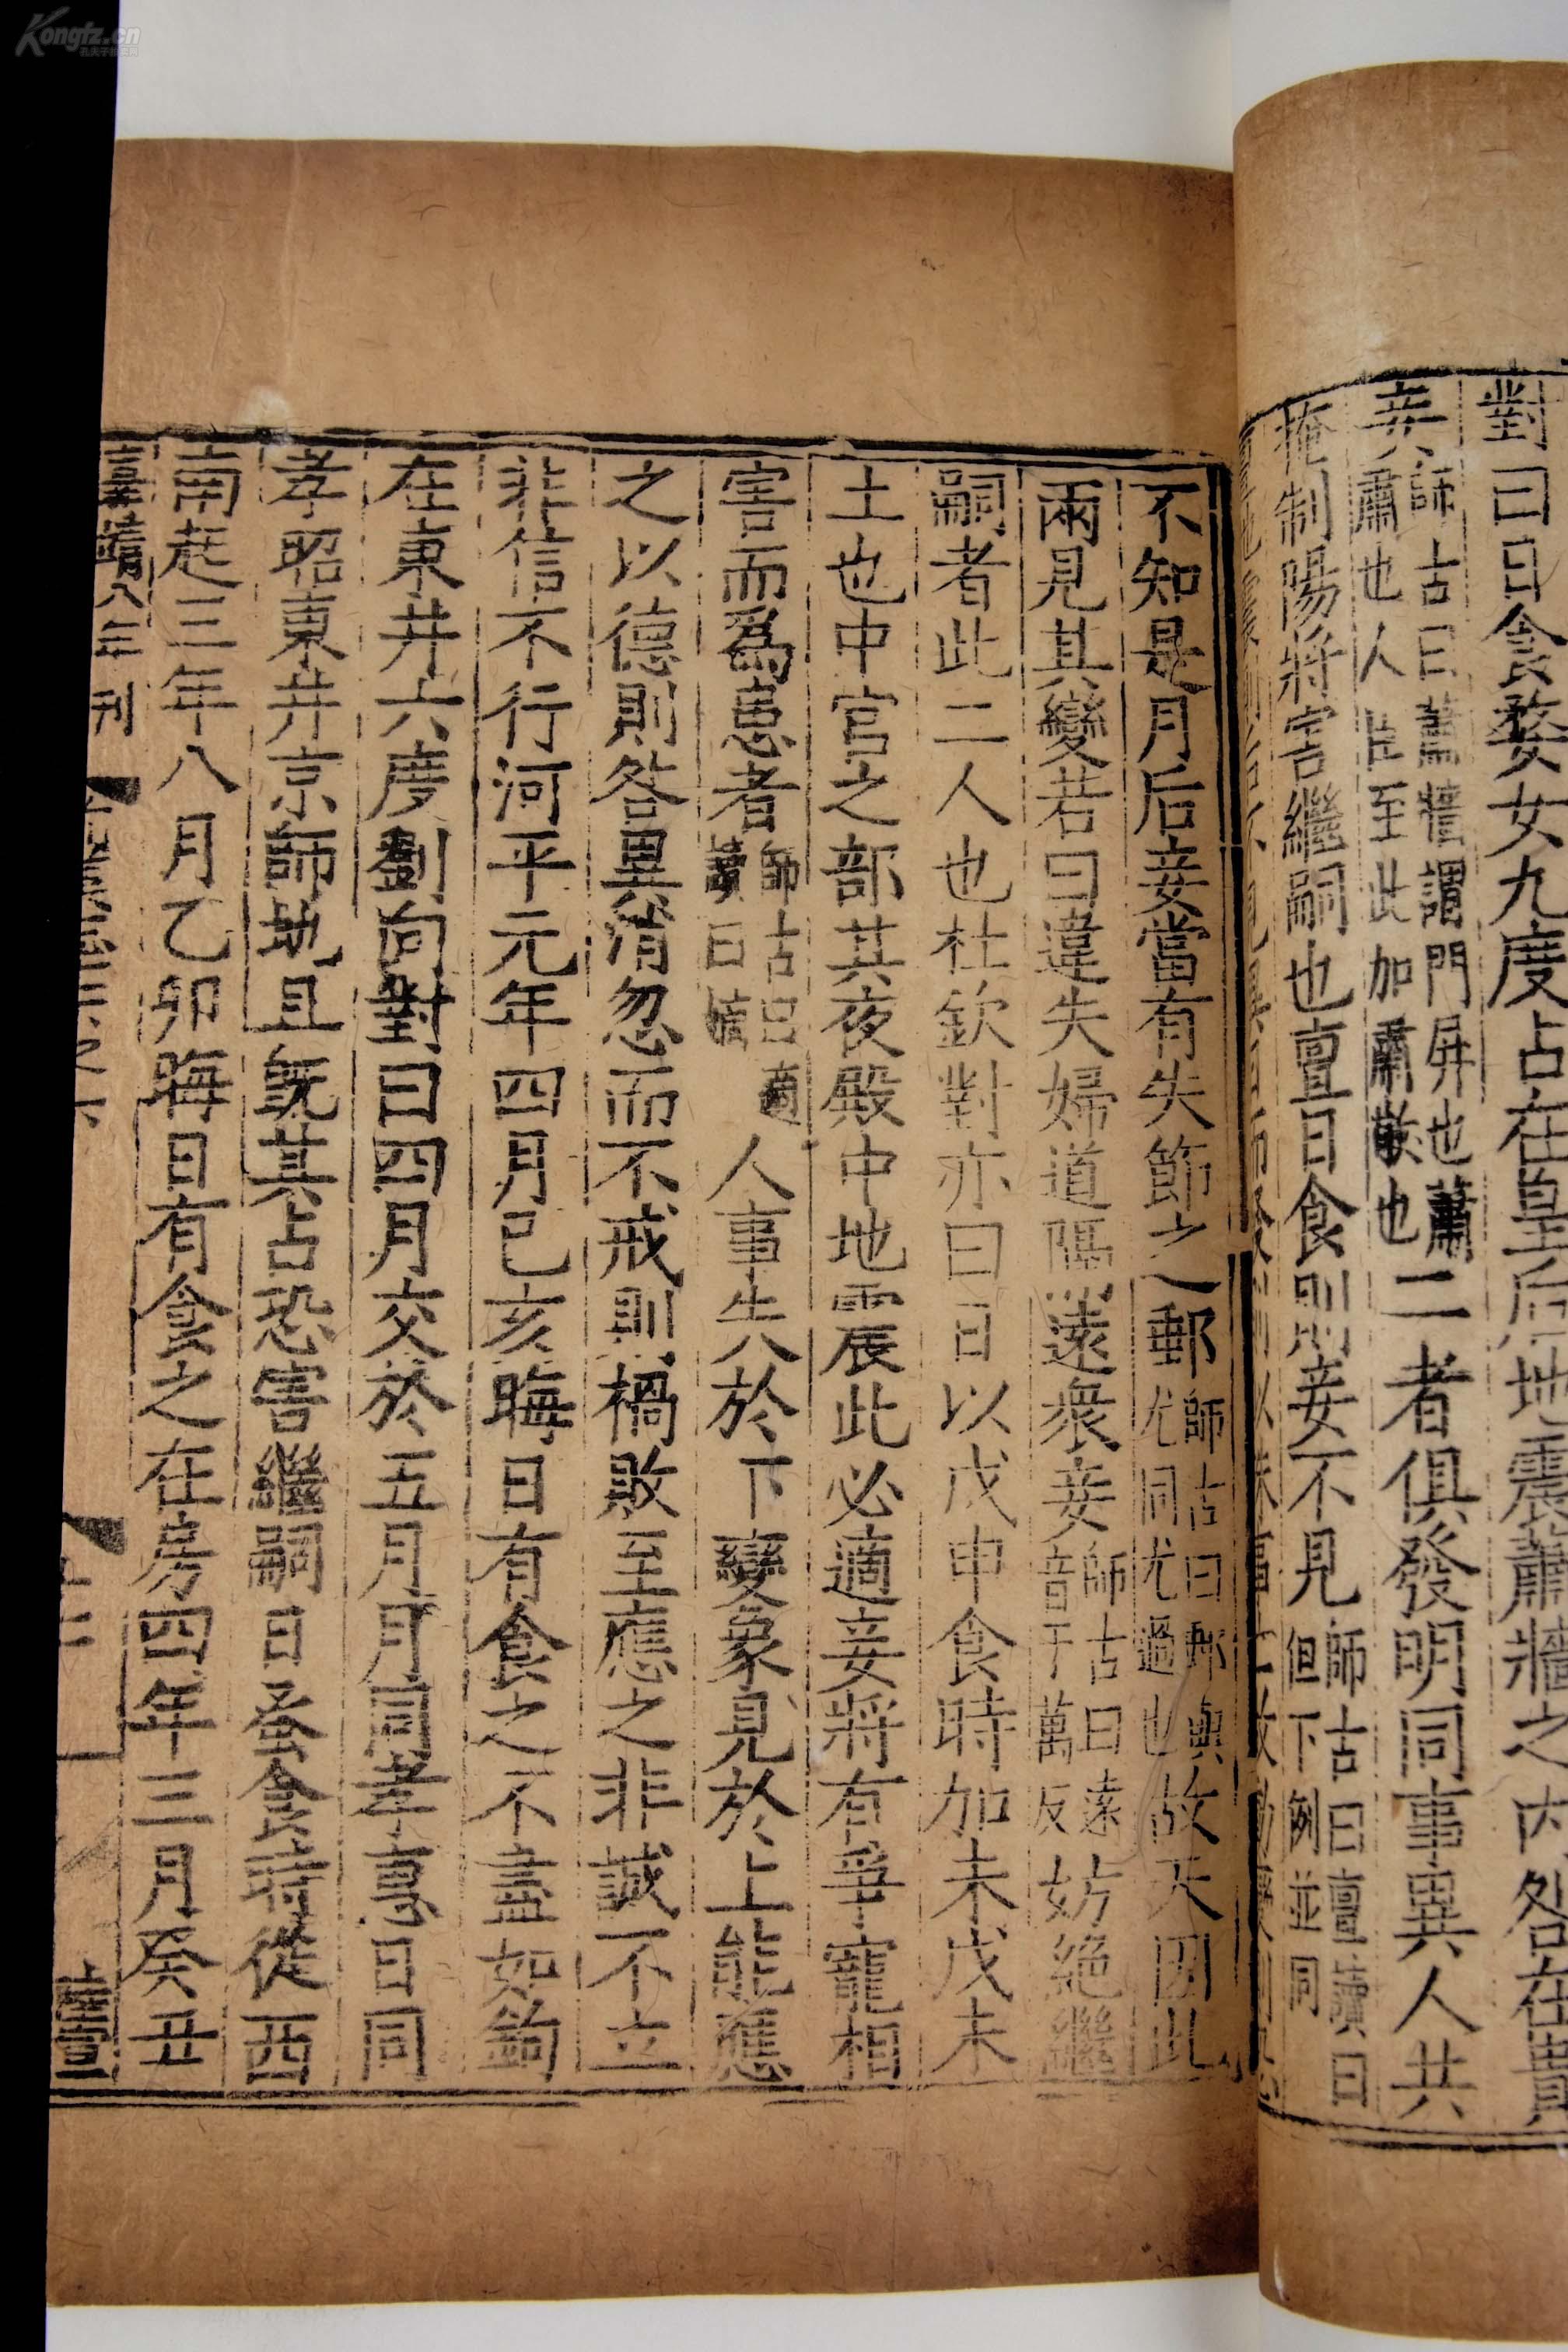 對曰日食婺女九度占在皇后地震蕭牆之内咎在貴
妾師古曰蕭牆謂門屏也蕭肅也人臣至此加肅敬也二者俱發明同事異人共
掩制陽將害繼嗣也亶日食則妾不見師古曰亶讀曰但下例並同
不知是月后妾當有失節之郵師古曰郵與尤同尤過也故天因此
兩見其變若曰違失婦道隔遠衆妾師古曰遠音于萬反妨絶繼
嗣者此二人也杜欽對亦曰日以戊申食時加未戊未
土也中宫之部其夜殿中地震此必適妾將有爭寵相
害而爲患者師古曰適讀曰嫡人事失於下變象見於上能應
之以德則咎異消忽而不戒則禍敗至應之非誠不立
非信不行河平元年四月己亥晦日有食之不盡如鉤
在東井六度劉向對曰四月交於五月月同孝惠日同
孝昭東井京師地且旣其占恐害繼嗣日蚤食時從西
南起三年八月乙卯晦日有食之在房四年三月癸丑
嘉靖八年刊
Kongfz.cn